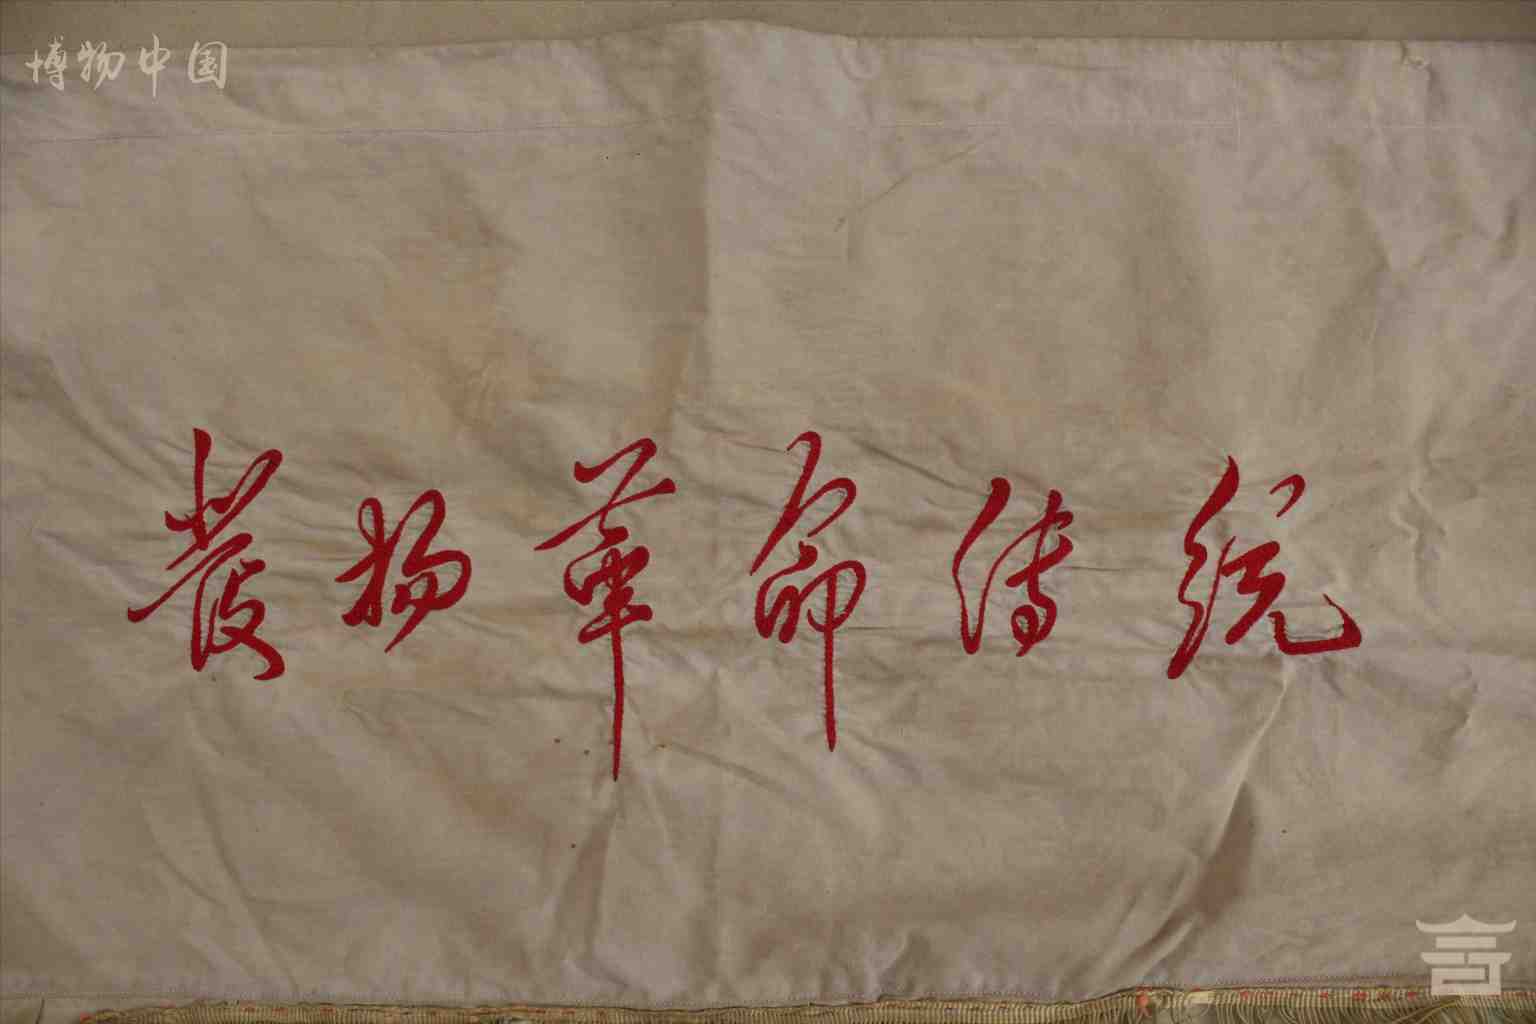 博物中国
發扬革命传统